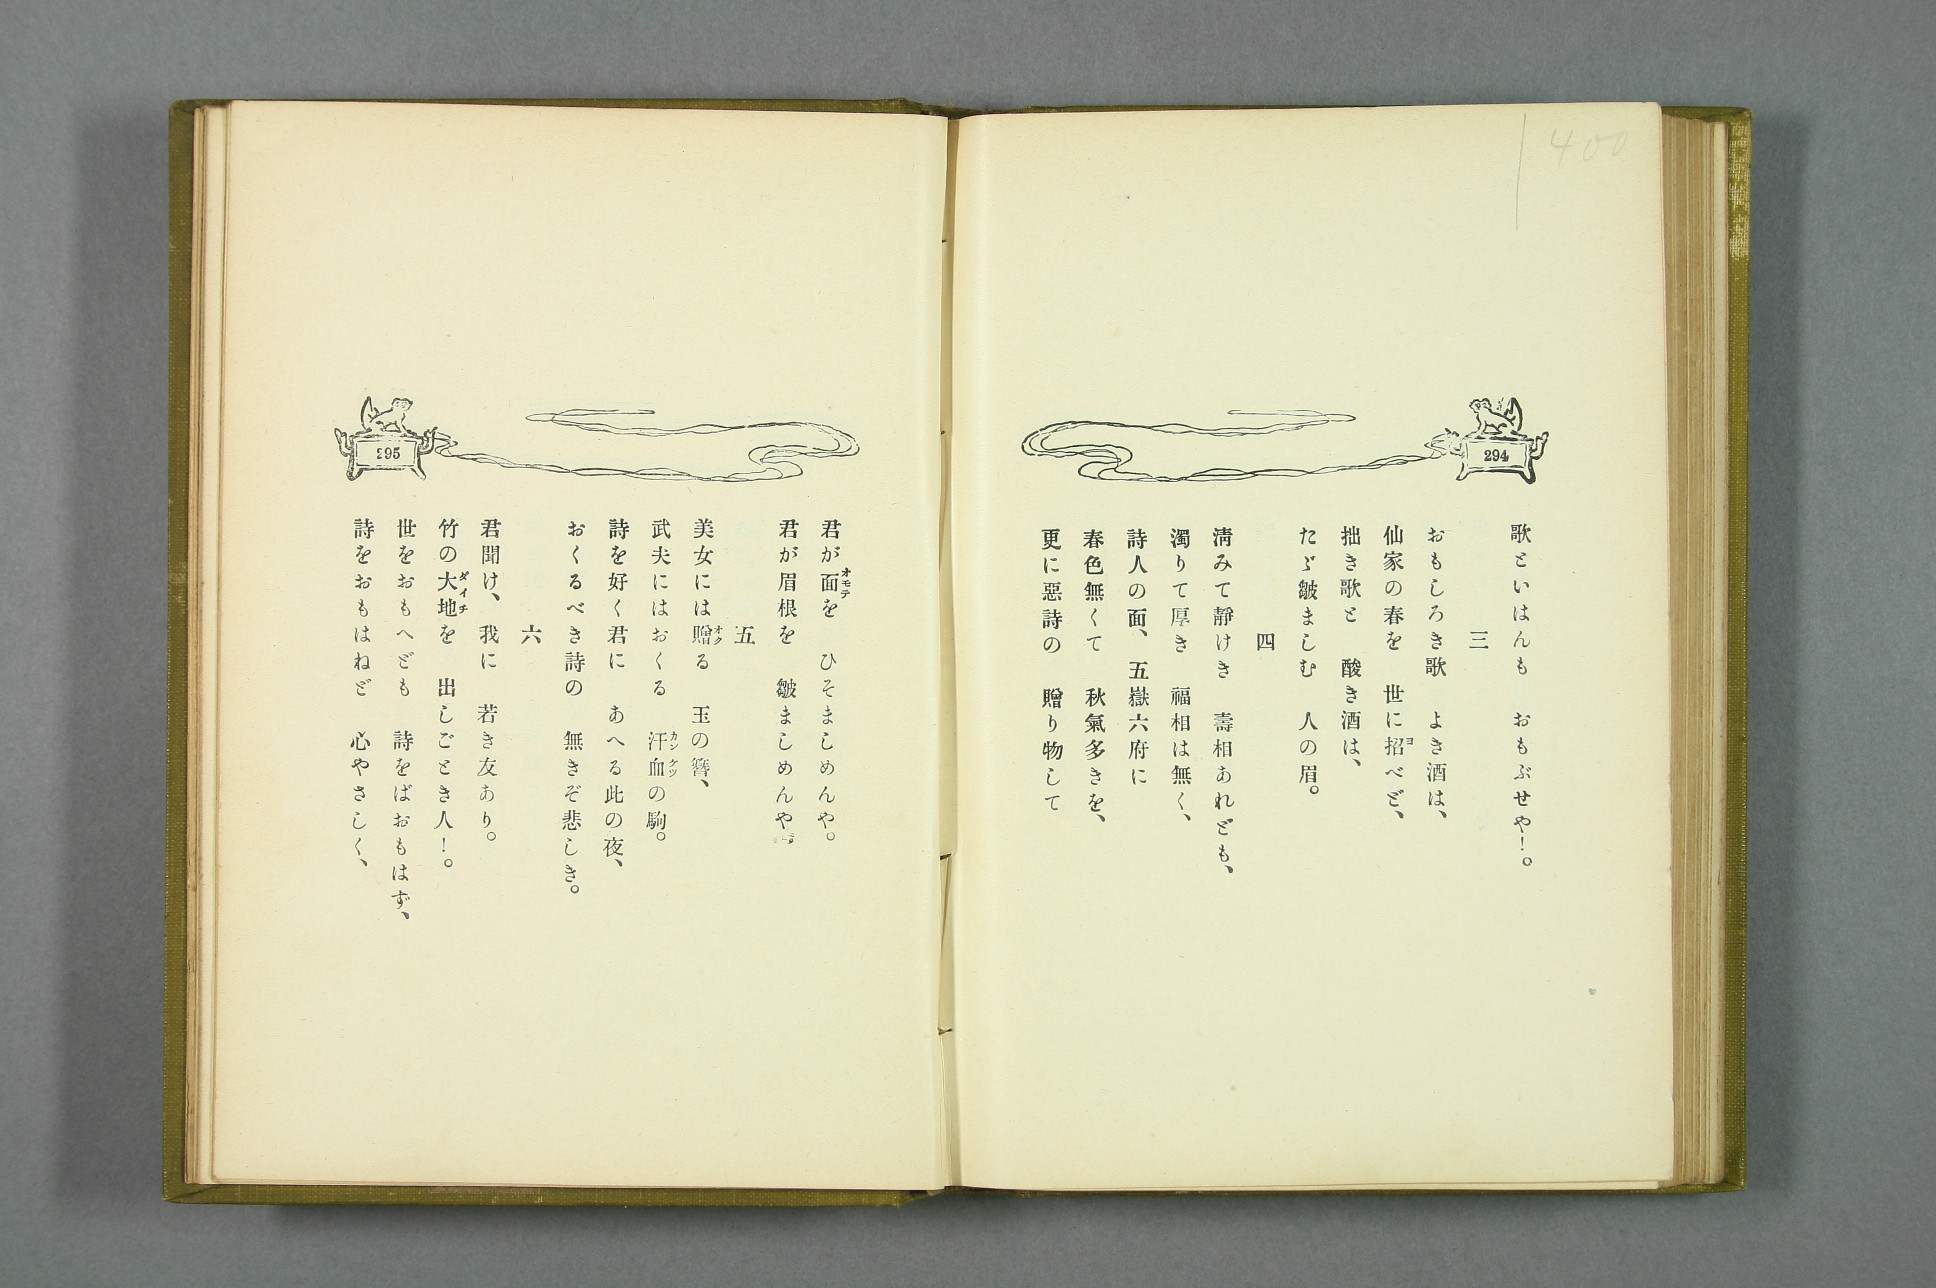 400
294
歌といはんも　おもぶせや！。
三
おもしろき歌　よき酒は、
仙家の春を　世に招べど、
ヨ
拙き歌と　酸き酒は、
たゞ皺ましむ　人の眉。
四
淸みて靜けき　壽相あれども、
濁りて厚き　福相は無く、
詩人の面、五嶽六府に
春色無くて　秋氣多きを、
更に惡詩の　贈り物して
295
君が面を　ひそましめんや。
オモテ
君が眉根を　皺ましめんや。
五
美女には贈る　玉の簪、
オク
武夫にはおくる　汗血の駒。
カンケツ
詩を好く君に　あへる此の夜、
おくるべき詩の　無きぞ悲しき。
六
君聞け、我に　若き友あり。
竹の大地を　出しごとき人！。
ダイチ
世をおもへども　詩をばおもはず、
詩をおもはねど　心やさしく、